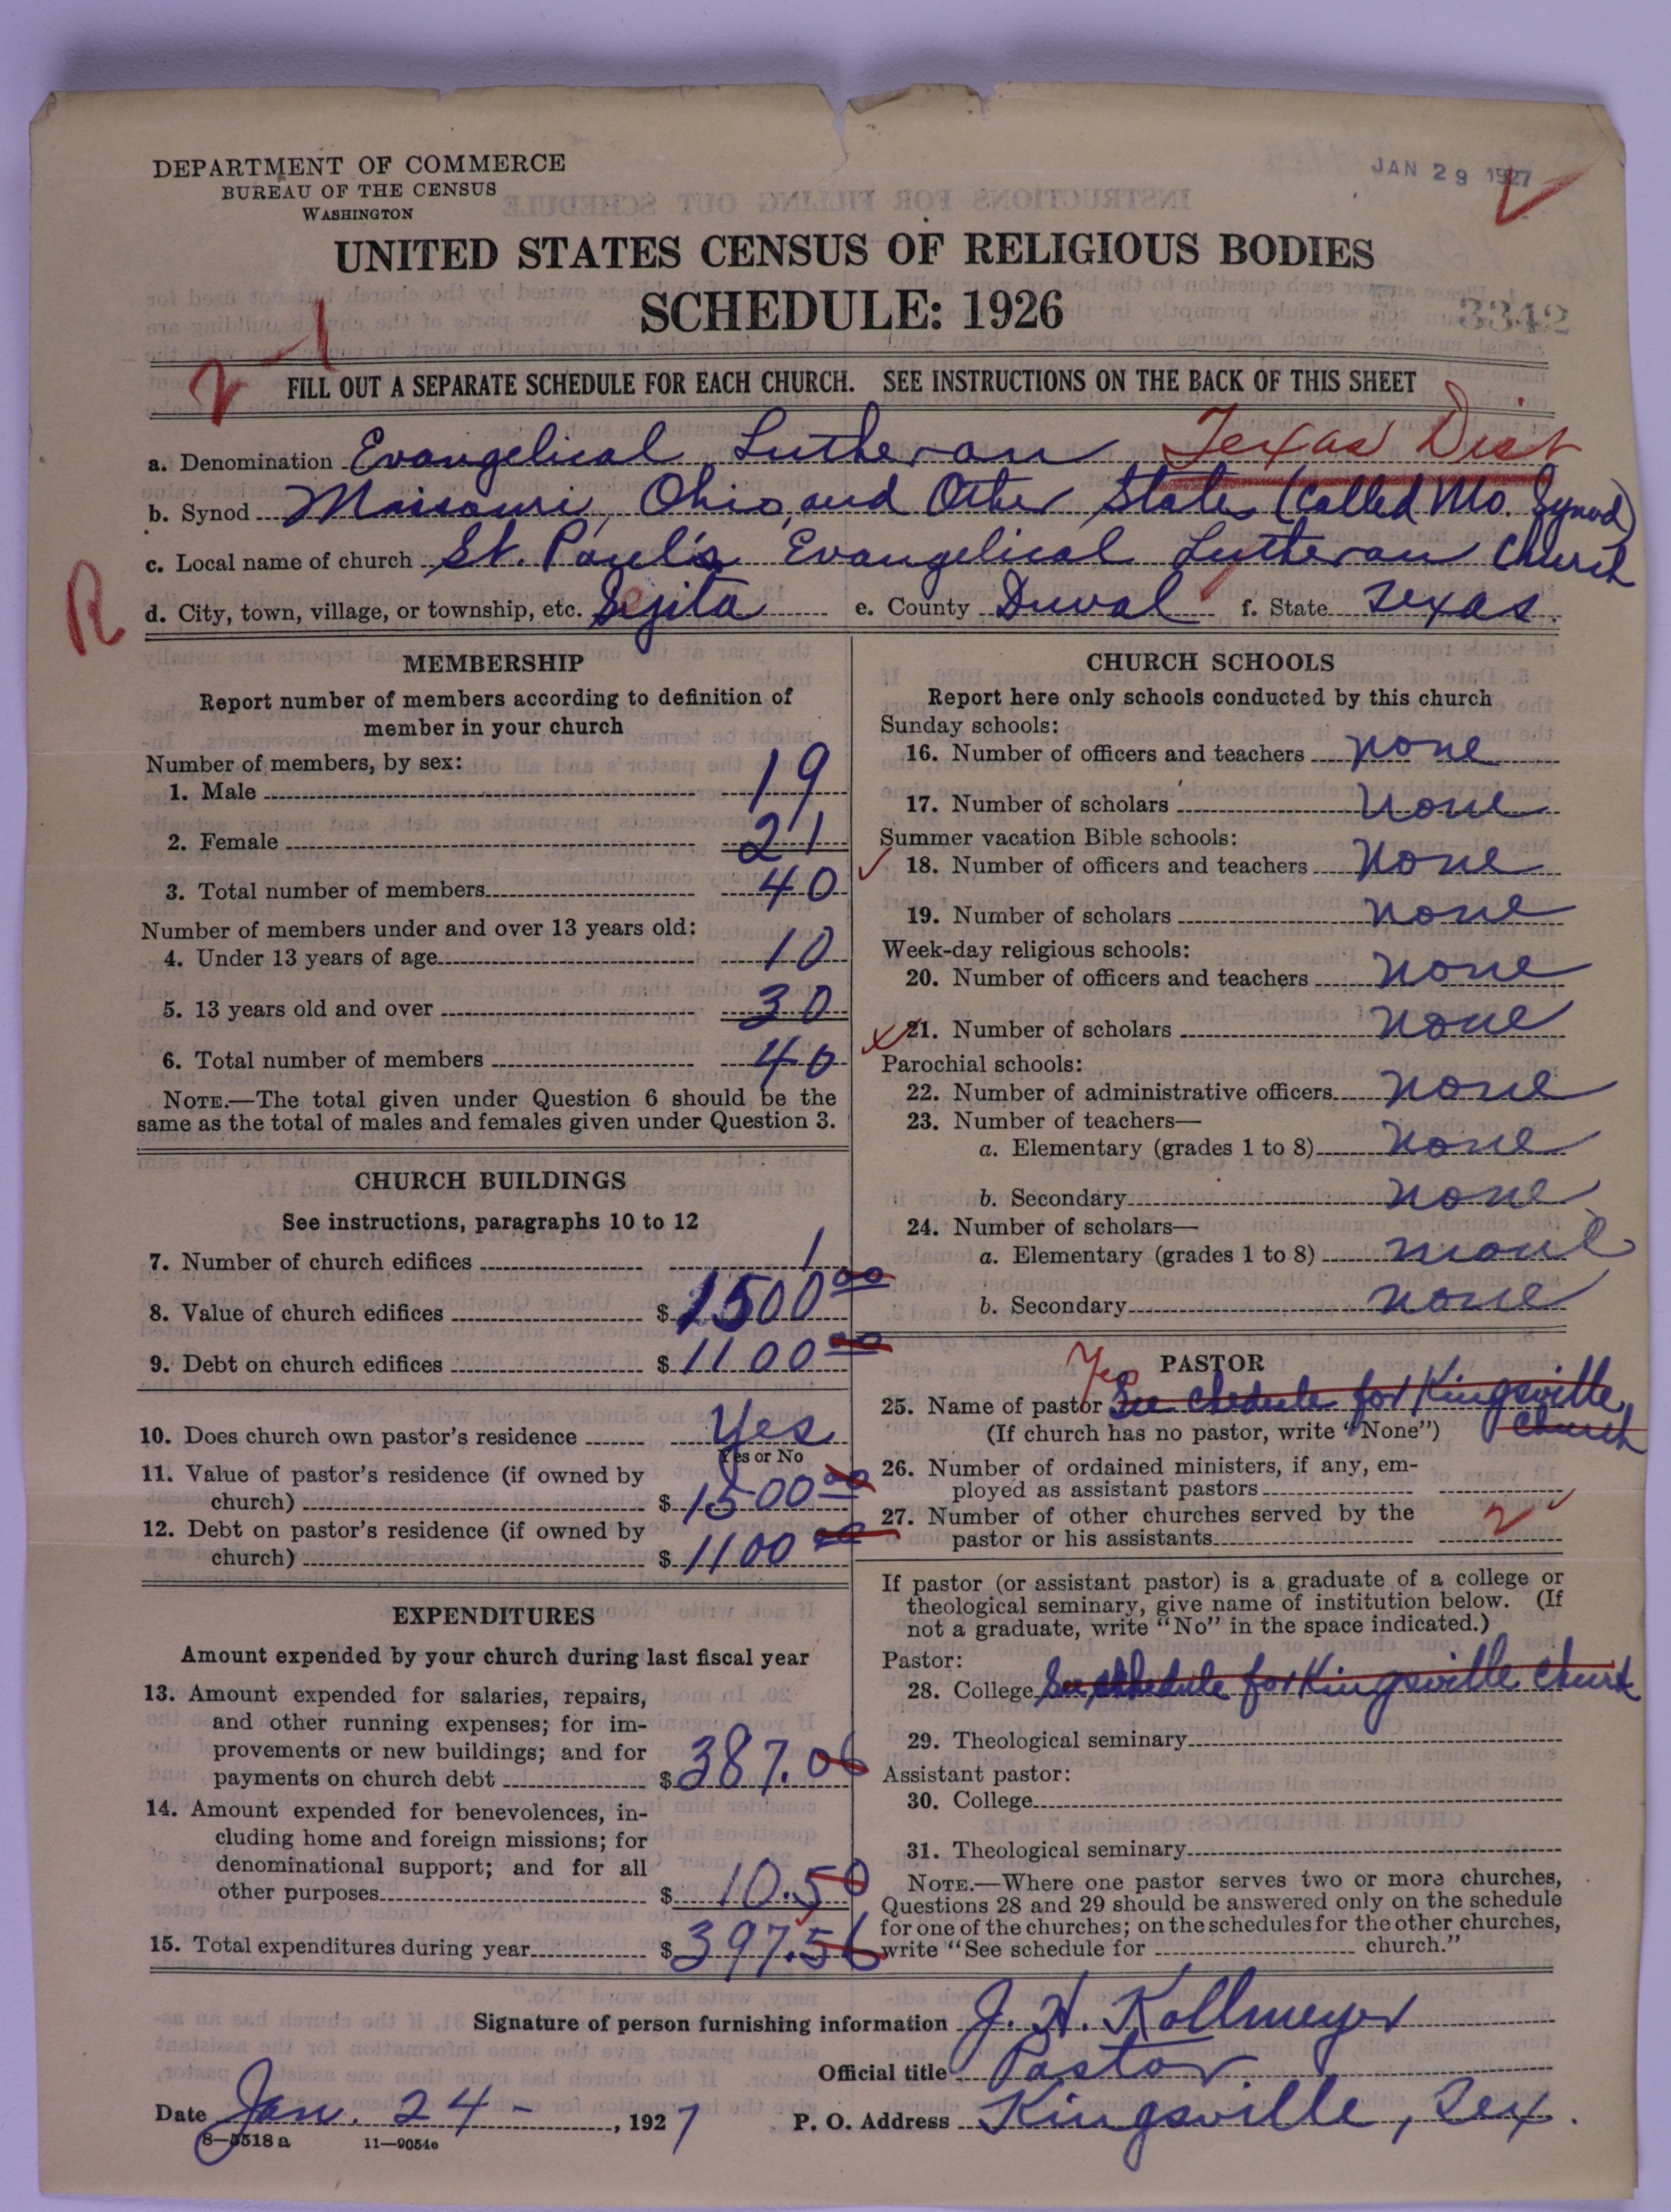 DEPARTMENT OF COMMERCE
BUREAU OF THE CENSUS
WASHINGTON
JAN 29 1927
UNITED STATES CENSUS OF RELIGIOUS BODIES
SCHEDULE: 1926
3342
FILL OUT A SEPARATE SCHEDULE FOR EACH CHURCH. SEE INSTRUCTIONS ON THE BACK OF THIS SHEET
a. Denomination Evangelical Lutheran Texas Dist
b. Synod Missouri, Ohio, and Other States (called Mo. Synod)
c. Local name of church St. Paul's Evangelical Lutheran Church
R
d. City, town, village, or township, etc. Sejita e. County Duval f. State Texas.
MEMBERSHIP
Report number of members according to definition of
member in your church
Number of members, by sex:
1. Male 19
2. Female 21
3. Total number of members 40
Number of members under and over 13 years old:
4. Under 13 years of age 10
5. 13 years old and over 30
6. Total number of members 40
NOTE.—The total given under Question 6 should be the
same as the total of males and females given under Question 3.
CHURCH BUILDINGS
See instructions, paragraphs 10 to 12
7. Number of church edifices 1
8. Value of church edifices $ 1500 00
9. Debt on church edifices $ 1100 00
10. Does church own pastor's residence Yes
Yes or No
11. Value of pastor's residence (if owned by
church) $ 1500 00
12. Debt on pastor's residence (if owned by
church) $ 1100 00
EXPENDITURES
Amount expended by your church during last fiscal year
13. Amount expended for salaries, repairs,
and other running expenses; for im-
provements or new buildings; and for
payments on church debt $ 387.06
14. Amount expended for benevolences, in-
cluding home and foreign missions; for
denominational support; and for all
other purposes $ 10.50
15. Total expenditures during year $ 397.56
CHURCH SCHOOLS
Report here only schools conducted by this church
Sunday schools:
16. Number of officers and teachers none
17. Number of scholars none
Summer vacation Bible schools:
18. Number of officers and teachers none
19. Number of scholars none
Week-day religious schools:
20. Number of officers and teachers none
21. Number of scholars none
Parochial schools:
22. Number of administrative officers none
23. Number of teachers—
a. Elementary (grades 1 to 8) none
b. Secondary none
24. Number of scholars—
a. Elementary (grades 1 to 8) none
b. Secondary none
PASTOR
Yes
25. Name of pastor See chedule for Kingsville
(If church has no pastor, write "None") Church
26. Number of ordained ministers, if any, em-
ployed as assistant pastors
27. Number of other churches served by the
pastor or his assistants 2
If pastor (or assistant pastor) is a graduate of a college or
theological seminary, give name of institution below. (If
not a graduate, write "No" in the space indicated.)
Pastor:
28. College See schedule for Kingsville Church
29. Theological seminary
Assistant pastor:
30. College
31. Theological seminary
NOTE.—Where one pastor serves two or more churches,
Questions 28 and 29 should be answered only on the schedule
for one of the churches; on the schedules for the other churches,
write "See schedule for church."
Signature of person furnishing information J. H. Kollmeyer
Official title Pastor
Date Jan. 24 - , 1927 P. O. Address Kingsville, Tex.
8-5518 a 11-9054c